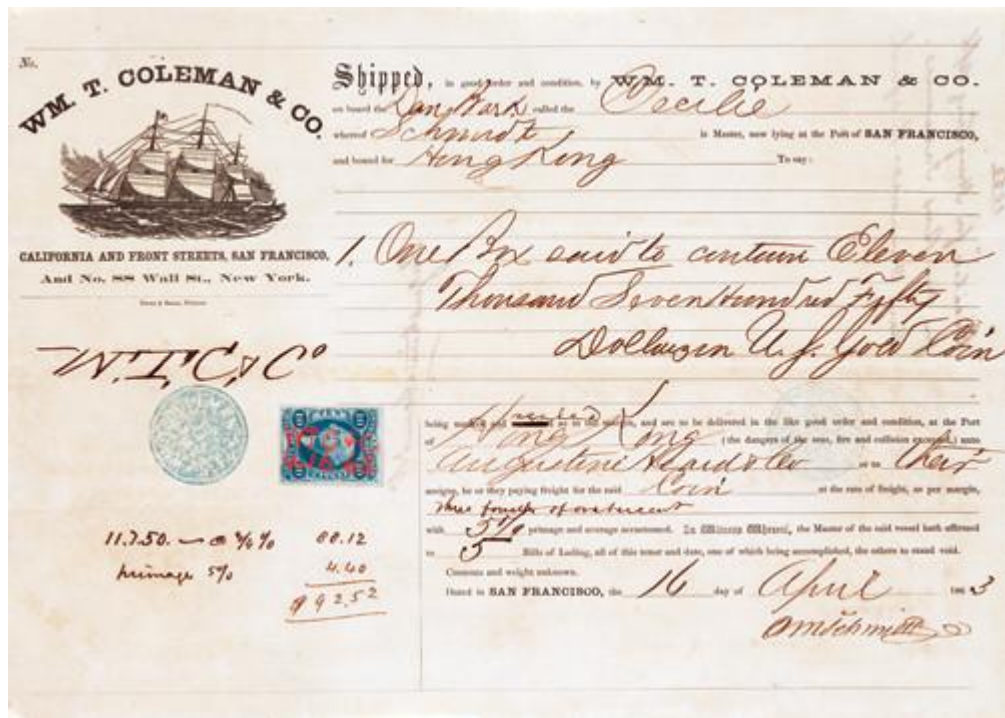 No.
WM. T. COLEMAN & CO.
CALIFORNIA AND FRONT STREETS, SAN FRANCISCO,
And No. 88 Wall St., New York.
Shipped, in good order and condition, by WM. T. COLEMAN & CO.
on board the Dan Bark called the Cecilie
whereof Schmidt is Master, now lying at the Port of SAN FRANCISCO,
and bound for Hong Kong To say:
1. One Box said to contain Eleven
Thousand Seven Hundred Fifty
Dollars in U.S. Gold Coin
being marked and numbered as in the margin, and are to be delivered in the like good order and condition, at the Port
of Hong Kong (the dangers of the seas, fire and collision excepted,) unto
Augustine Heard & Co or to their
assigns, he or they paying freight for the said Coin at the rate of freight, as per margin,
three fourths of one per cent
with 5% primage and average accustomed. In Witness Whereof, the Master of the said vessel hath affirmed
to 5 Bills of Lading, all of this tenor and date, one of which being accomplished, the others to stand void.
Contents and weight unknown.
Dated in SAN FRANCISCO, the 16 day of April 1863
11.750. @ ¾% 88.12
primage 5% 4.40
$92.52